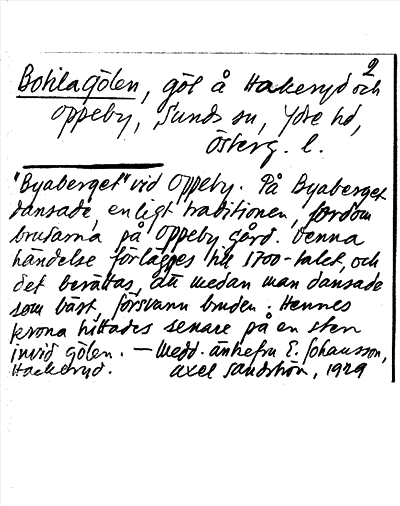 2
Bohlagölen, göl å Hackeryd och
Oppeby, Sunds sn, Ydre hd,
Österg. l.
"Byaberget" vid Oppeby. På Byaberget
dansade, enligt traditionen, fordom
brudarna på Oppeby gård. Denna
händelse förlägges till 1700-talet, och
det berättas, att medan man dansade
som bäst, försvann bruden. Hennes
krona hittades senare på en sten
invid gölen. — Medd. änkefru E. Johansson,
Hackeryd. Axel Sandström, 1929